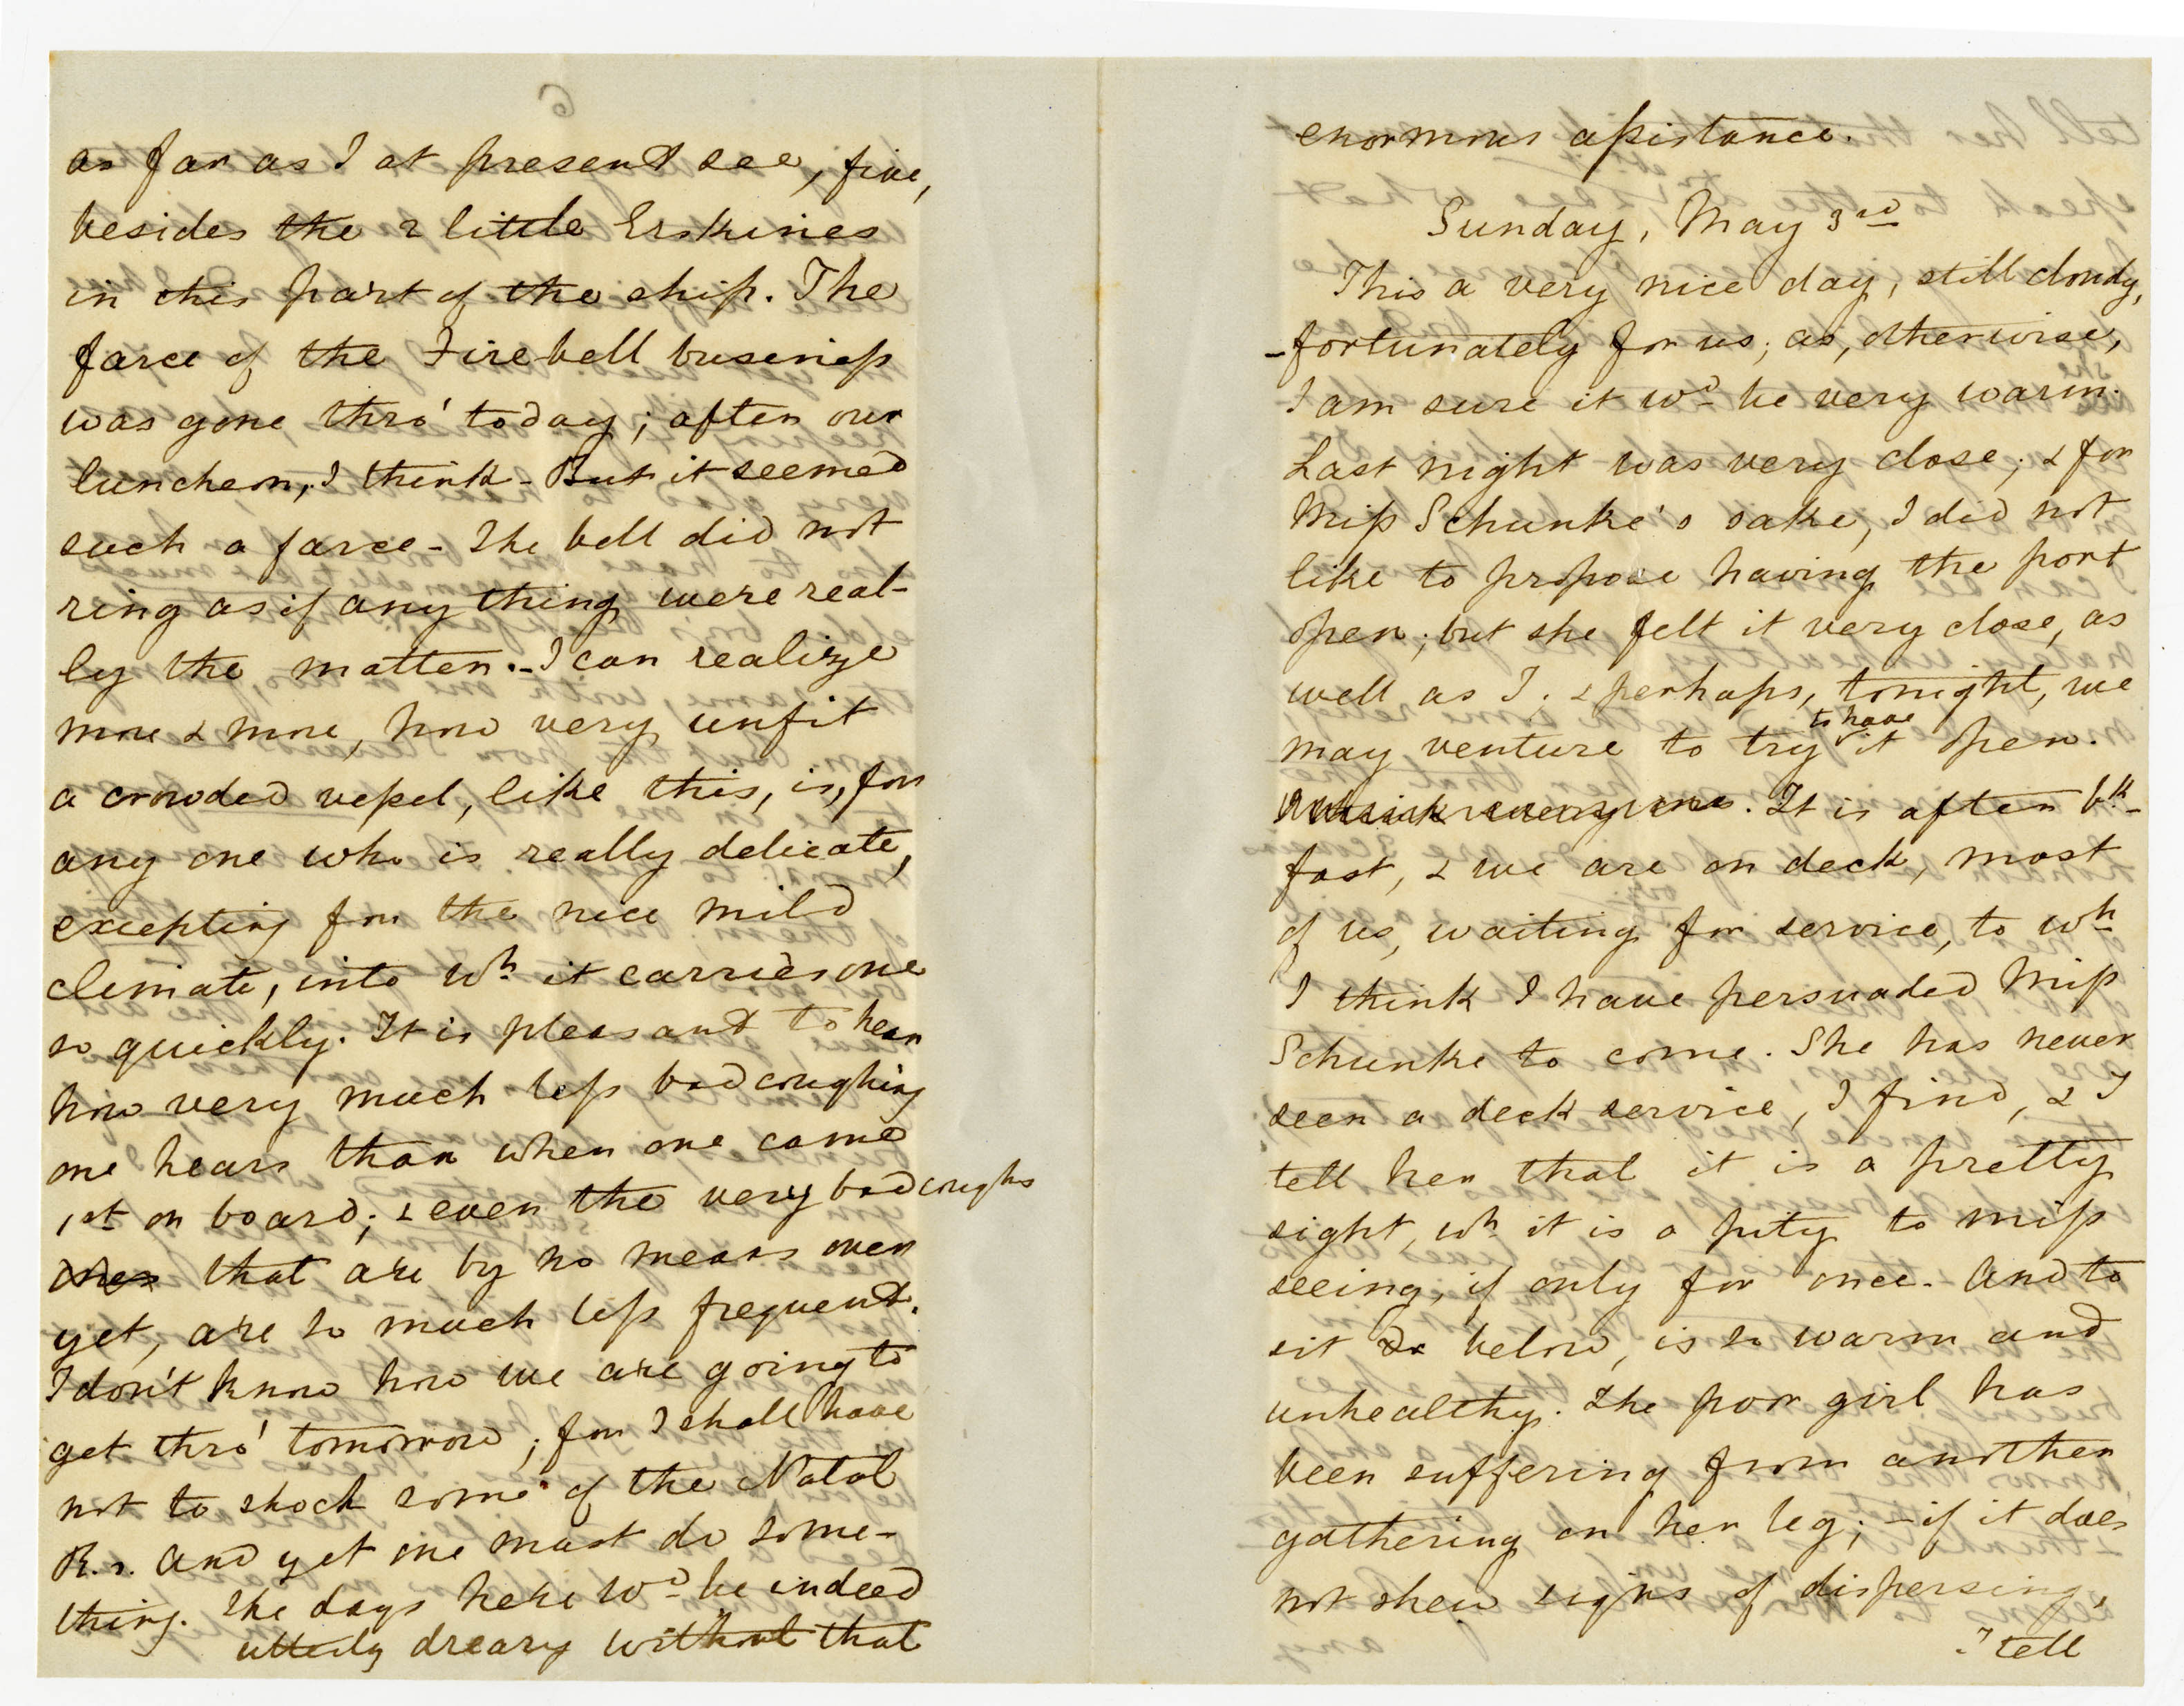 as far as I at present see, five,
besides the 2 little Erskines
in this part of the ship. The
farce of the Fire bell business
was gone thro' today; after our
luncheon, I think - But it seemed
such a farce - The bell did not
ring as if any thing were real-
ly the matter. - I can realize
more & more, how very unfit
a crowded vessel, like this, is, for
any one who is really delicate,
excepting for the nice mild
climate, into wh it carries one
so quickly. It is pleasant to hear
how very much less bad coughing
one hears than when one came
1st on board; & even the very bad coughs
ones that are by no means over
yet, are so much less frequent.
I don't know how we are going to
get thro' tomorrow; for I shall have
not to shock some of the Natal
R.s. And yet one must do some-
thing. The days here wd be indeed
utterly dreary without that
enormous assistance.
Sunday, May 3rd
This a very nice day, still cloudy,
- fortunately for us; as, otherwise,
I am sure it wd be very warm.
Last night was very close; & for
Miss Schunke's sake, I did not
like to propose having the port
open; but she felt it very close, as
well as I; & perhaps, tonight, we
may venture to try to have it open.
It is after bk-
fast, & we are on deck, most
of us, waiting for service, to wh
I think I have persuaded Miss
Schunke to come. She has never
seen a deck service, I find, & I
tell her that it is a pretty
sight, wh it is a pity to miss
seeing, if only for once. - And to
sit below, is so warm and
unhealthy. The poor girl has
been suffering from another
gathering on her leg; - if it does
not shew signs of dispersing,
I tell